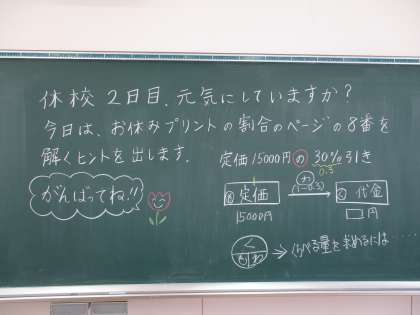 休校 2日目.元気にしていますか?
今日は、お休みプリントの割合のページの8番を
解くヒントを出します.
定価15000円の30%引き
0.3
がんばってね!!
も 定価
わ
(1-0.3)
く 代金
15000円
□円
く
も わ
くらべる量を求めるには……